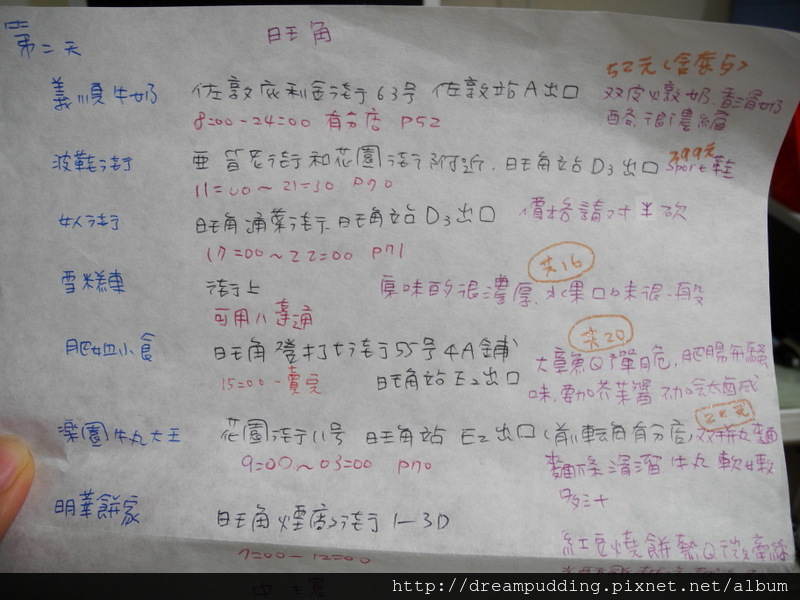 第二天 旺角
52元(含蛋5)
義順牛奶 佐敦庇利金街63号 佐敦站A出口 双皮燉奶.香滑奶
8=00-24=00 有分店 P52 酪很濃縮
399元
波鞋街 亜皆老街和花園街附近.旺角站D3出口 sport鞋
11=00~21=30 P70
女人街 旺角通菜街.旺角站D3出口 價格請对半砍
17=00~22=00 P71
共16
雪糕車 街上 原味的很濃厚.水果口味很一般
可用八達通
共20
肥姐小食 旺角登打士街55号4A舖 大章魚Q彈脆.肥腸有騷
15=00-賣完 旺角站E2出口 味.要加芥茉醬不加吃太鹹
楽園牛丸大王 花園街11号 旺角站 E2出口(前転角有分店) 双拼丸麵
9=00~03=00 P70 麵條滑溜牛丸軟嫩
多汁
明華餅家 旺角煙廠街1-3D
紅豆燒餅熱Q微牽絲
7=00-12=00
http://dreampudding.pixnet.net/album